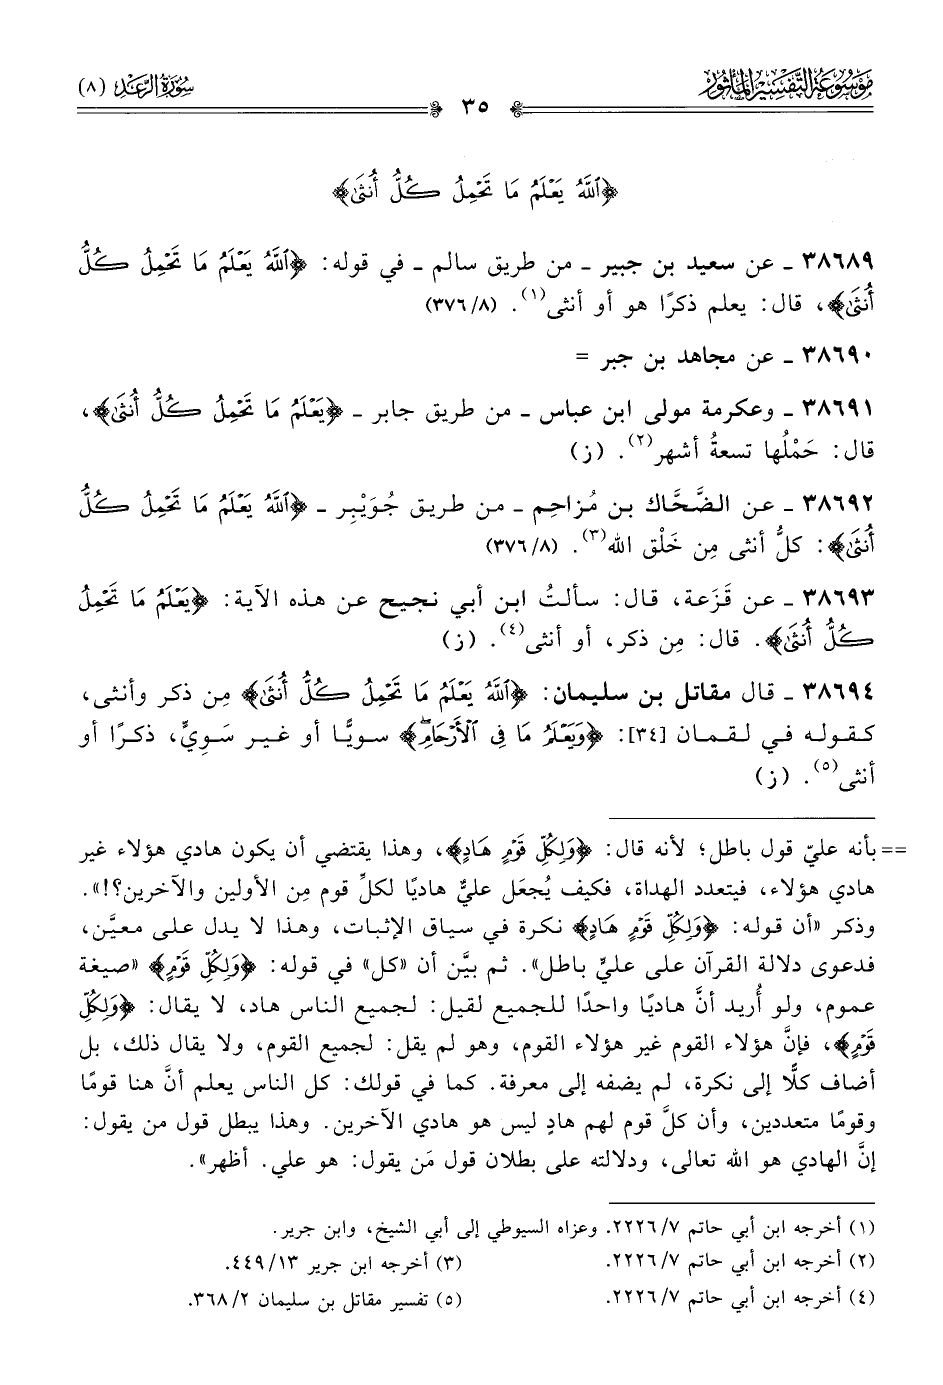 موسوعة التفسير المأثور
٣٥
سورة الرعد (٨)
﴿ٱللَّهُ يَعْلَمُ مَا تَحْمِلُ كُلُّ أُنثَىٰ﴾
٣٨٦٨٩ ـ عن سعيد بن جبير ـ من طريق سالم ـ في قوله: ﴿ٱللَّهُ يَعْلَمُ مَا تَحْمِلُ كُلُّ
أُنثَىٰ﴾، قال: يعلم ذكرًا هو أو أنثى(١). (٨/ ٣٧٦)
٣٨٦٩٠ ـ عن مجاهد بن جبر =
٣٨٦٩١ ـ وعكرمة مولى ابن عباس ـ من طريق جابر ـ ﴿يَعْلَمُ مَا تَحْمِلُ كُلُّ أُنثَىٰ﴾،
قال: حَمْلُها تسعةُ أشهر(٢). (ز)
٣٨٦٩٢ ـ عن الضَّحَّاك بن مُزاحِم ـ من طريق جُوَيْبِر ـ ﴿ٱللَّهُ يَعْلَمُ مَا تَحْمِلُ كُلُّ
أُنثَىٰ﴾: كلُّ أنثى مِن خَلْق الله(٣). (٨/ ٣٧٦)
٣٨٦٩٣ ـ عن قَزَعة، قال: سألتُ ابن أبي نجيح عن هذه الآية: ﴿يَعْلَمُ مَا تَحْمِلُ
كُلُّ أُنثَىٰ﴾. قال: مِن ذكر، أو أنثى(٤). (ز)
٣٨٦٩٤ ـ قال مقاتل بن سليمان: ﴿ٱللَّهُ يَعْلَمُ مَا تَحْمِلُ كُلُّ أُنثَىٰ﴾ مِن ذكر وأنثى،
كقوله في لقمان [٣٤]: ﴿وَيَعْلَمُ مَا فِى ٱلْأَرْحَامِۖ﴾ سويًّا أو غير سَوِيٍّ، ذكرًا أو
أنثى(٥). (ز)
== بأنه عليّ قول باطل؛ لأنه قال: ﴿وَلِكُلِّ قَوْمٍ هَادٍ﴾، وهذا يقتضي أن يكون هادي هؤلاء غير
هادي هؤلاء، فيتعدد الهداة، فكيف يُجعَل عليٌّ هاديًا لكلِّ قوم مِن الأولين والآخرين؟!».
وذكر «أن قوله: ﴿وَلِكُلِّ قَوْمٍ هَادٍ﴾ نكرة في سياق الإثبات، وهذا لا يدل على معيَّن،
فدعوى دلالة القرآن على عليٍّ باطل». ثم بيَّن أن «كل» في قوله: ﴿وَلِكُلِّ قَوْمٍ﴾ «صيغة
عموم، ولو أُريد أنَّ هاديًا واحدًا للجميع لقيل: لجميع الناس هاد، لا يقال: ﴿وَلِكُلِّ
قَوْمٍ﴾، فإنَّ هؤلاء القوم غير هؤلاء القوم، وهو لم يقل: لجميع القوم، ولا يقال ذلك، بل
أضاف كلًّا إلى نكرة، لم يضفه إلى معرفة. كما في قولك: كل الناس يعلم أنَّ هنا قومًا
وقومًا متعددين، وأن كلَّ قوم لهم هادٍ ليس هو هادي الآخرين. وهذا يبطل قول من يقول:
إنَّ الهادي هو الله تعالى، ودلالته على بطلان قول مَن يقول: هو علي. أظهر».
(١) أخرجه ابن أبي حاتم ٧/ ٢٢٢٦. وعزاه السيوطي إلى أبي الشيخ، وابن جرير.
(٢) أخرجه ابن أبي حاتم ٧/ ٢٢٢٦. (٣) أخرجه ابن جرير ١٣/ ٤٤٩.
(٤) أخرجه ابن أبي حاتم ٧/ ٢٢٢٦. (٥) تفسير مقاتل بن سليمان ٢/ ٣٦٨.